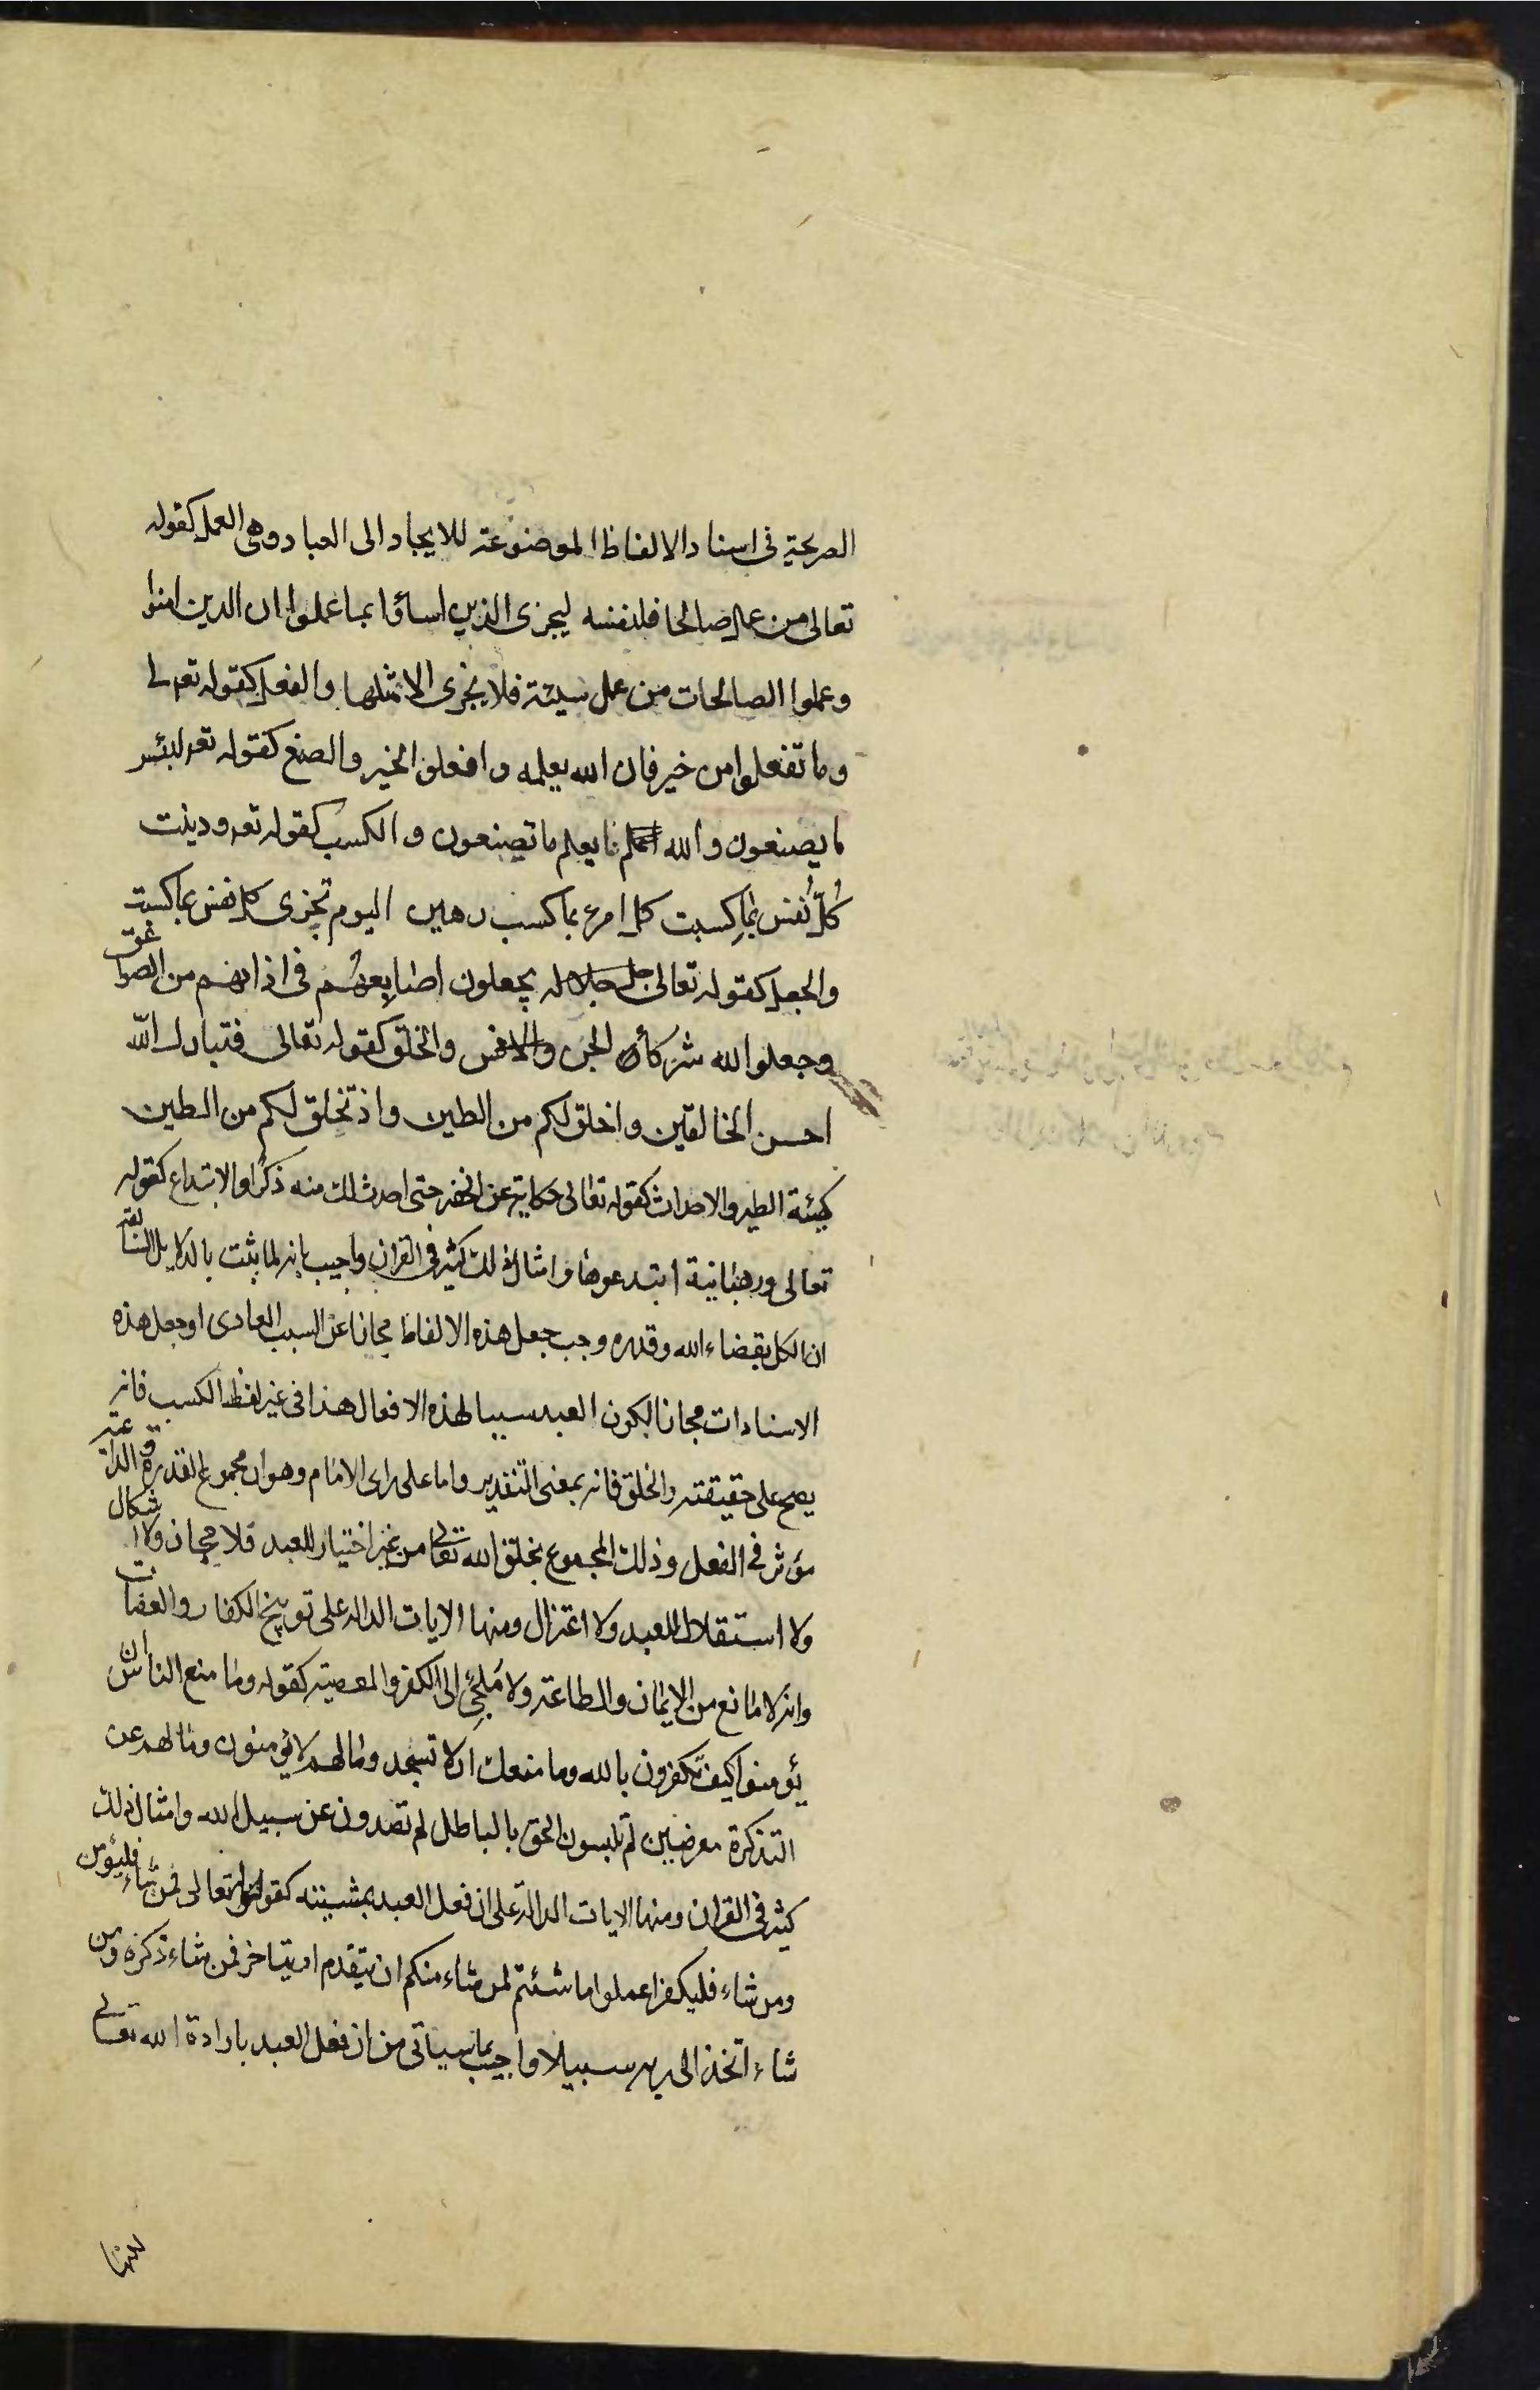 الصريحة في اسناد الالفاظ الموضوعة للايجاد الى العباد وهى العمل كقوله
تعالى من عمل صالحا فلنفسه ليجزى الذين اساؤا بما عملوا ان الذين امنوا
وعملوا الصالحات من عمل سيئة فلا يجزى الا مثلها والفعل كقوله تعالى
وما تفعلوا من خير فان الله يعلمه وافعلوا الخير والصنع كقوله تعه لبئس
ما يصنعون والله يعلم ما تصنعون والكسب كقوله تعه ودينت
كُلُّ نفس بما كسبت كل امرء بما كسب رهين اليوم تجزى كل نفس بما كسبت
والجعل كقوله تعالى جل جلاله يجعلون اصابعهم فى اذانهم من الصواعق
وجعلوا الله شركاء الجن والانس والخلق كقوله تعالى فتبارك الله
احسن الخالقين واخلق لكم من الطين واذ تخلق لكم من الطين
كهيئة الطير والاحداث كقوله تعالى حكاية عن الخضر حتى احدث لك منه ذكرا والابتداع كقوله
تعالى ورهبانية ابتدعوها وامثال ذلك كثير فى القران واجيب بانه لما ثبت بالدلايل السابقة
ان الكل بقضاء الله وقدره وجب جعل هذه الالفاظ مجازا عن السبب العادى او جعل هذه
الاسنادات مجازا لكون العبد سببا لهذه الافعال هذا فى غير لفظ الكسب فانه
يصح على حقيقته والخلق فانه بمعنى التقدير واما على راى الامام وهو ان مجموع القدرة والداعية
مؤثر فى الفعل وذلك المجموع بخلق الله تعالى من غير اختيار للعبد فلا مجاز ولا اشكال
ولا استقلال للعبد ولا اعتزال ومنها الايات الدالة على توبيخ الكفار والعصات
وانه لا مانع من الايمان والطاعة ولا مُلجِئ الى الكفر والمعصية كقوله وما منع الناس ان
يؤمنوا كيف تكفرون بالله وما منعك ان لا تسجد وما لهم لا يؤمنون وما لهم عن
التذكرة معرضين لم تلبسون الحق بالباطل لم تصدون عن سبيل الله وامثال ذلك
كثير فى القران ومنها الايات الدالة على ان فعل العبد بمشيته كقوله تعالى فمن شاء فليؤمن
ومن شاء فليكفر اعملوا ما شئتم لمن شاء منكم ان يتقدم او يتاخر فمن شاء ذكره ومن
شاء اتخذ الى ربه سبيلا واجيب بما سياتى من ان فعل العبد بارادة الله تعالى